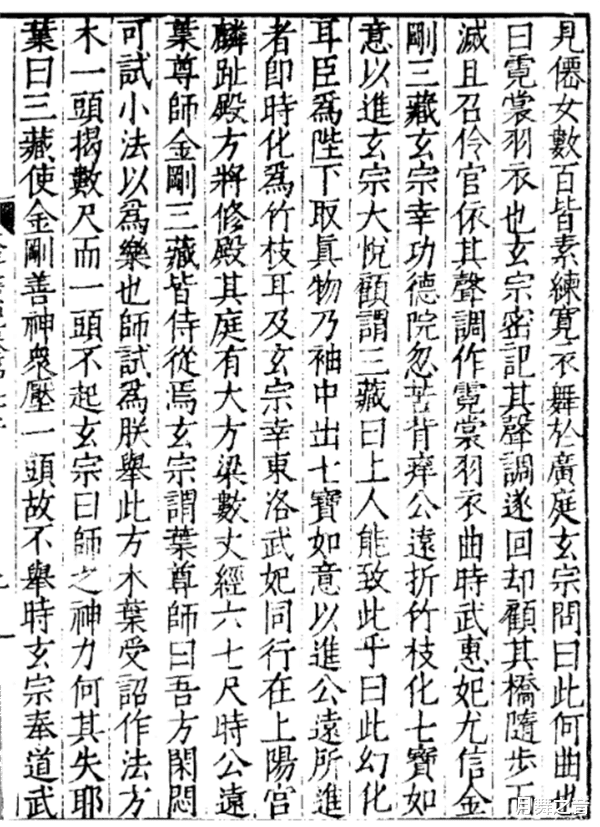 見僊女數百皆素練寬衣舞於廣庭玄宗問曰此何曲也
曰霓裳羽衣也玄宗密記其聲調遂回却顧其橋隨步而
滅且召伶官依其聲調作霓裳羽衣曲時武惠妃尤信金
剛三藏玄宗幸功德院忽苦背癢公遠折竹枝化七寶如
意以進玄宗大悅顧謂三藏曰上人能致此乎曰此幻化
耳臣爲陛下取眞物乃袖中出七寶如意以進公遠所進
者即時化爲竹枝耳及玄宗幸東洛武妃同行在上陽宮
麟趾殿方將修殿其庭有大方梁數丈經六七尺時公遠
葉尊師金剛三藏皆侍從焉玄宗謂葉尊師曰吾方閑悶
可試小法以爲樂也師試爲朕舉此方木葉受詔作法方
木一頭揭數尺而一頭不起玄宗曰師之神力何其失耶
葉曰三藏使金剛善神衆壓一頭故不舉時玄宗奉道武
月舞之音